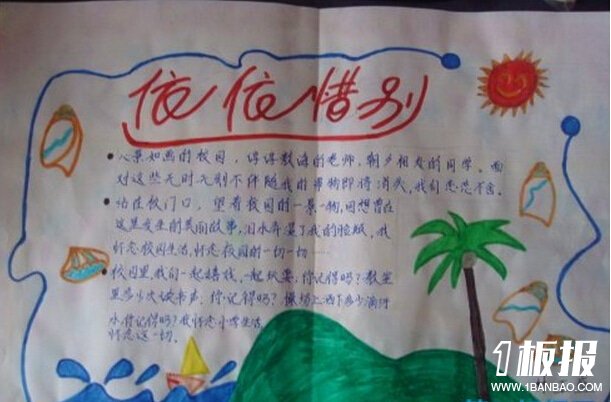 依依惜别
心景如画的校园，谆谆教诲的老师，朝夕相处的同学。面
对这些无时无刻不伴随我的事物即将消失，我们恋恋不舍。
站在校门口，望着校园的一景一物，回想曾在
这里发生的美丽故事，泪水弄湿了我的脸颊，我
怀恋校园生活，怀恋校园的一切一切……
校园里，我们一起嬉戏，一起玩耍，你记得吗？教室
里多少次读书声，你记得吗？操场上洒下多少滴汗
水你记得吗？我怀恋小学生活，
怀恋这一切。
1板报
WWW.1BANBAO.COM